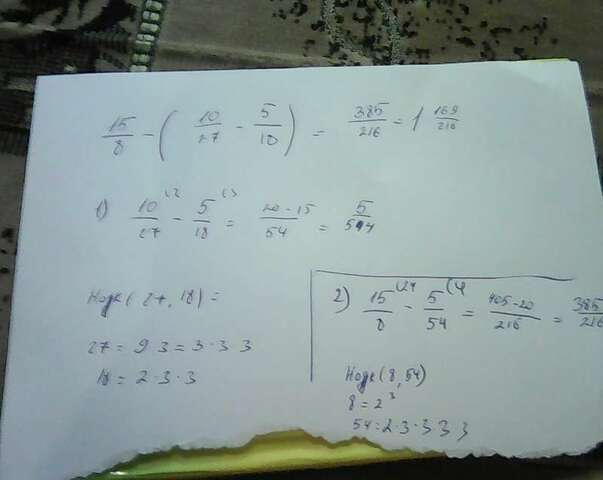 15/8 - ( 10/27 - 5/18 ) = 385/216 = 1 169/216
1) 10/27 (2 - 5/18 (3 = 20-15/54 = 5/54
Нодк(27, 18) =
27 = 9 3 = 3·3 3
18 = 2·3·3
2) 15/8 - 5/54 (4 = 405-20/216 = 385/216
Нодк(8,54)
8 = 2³
54=2·3·3 3 3